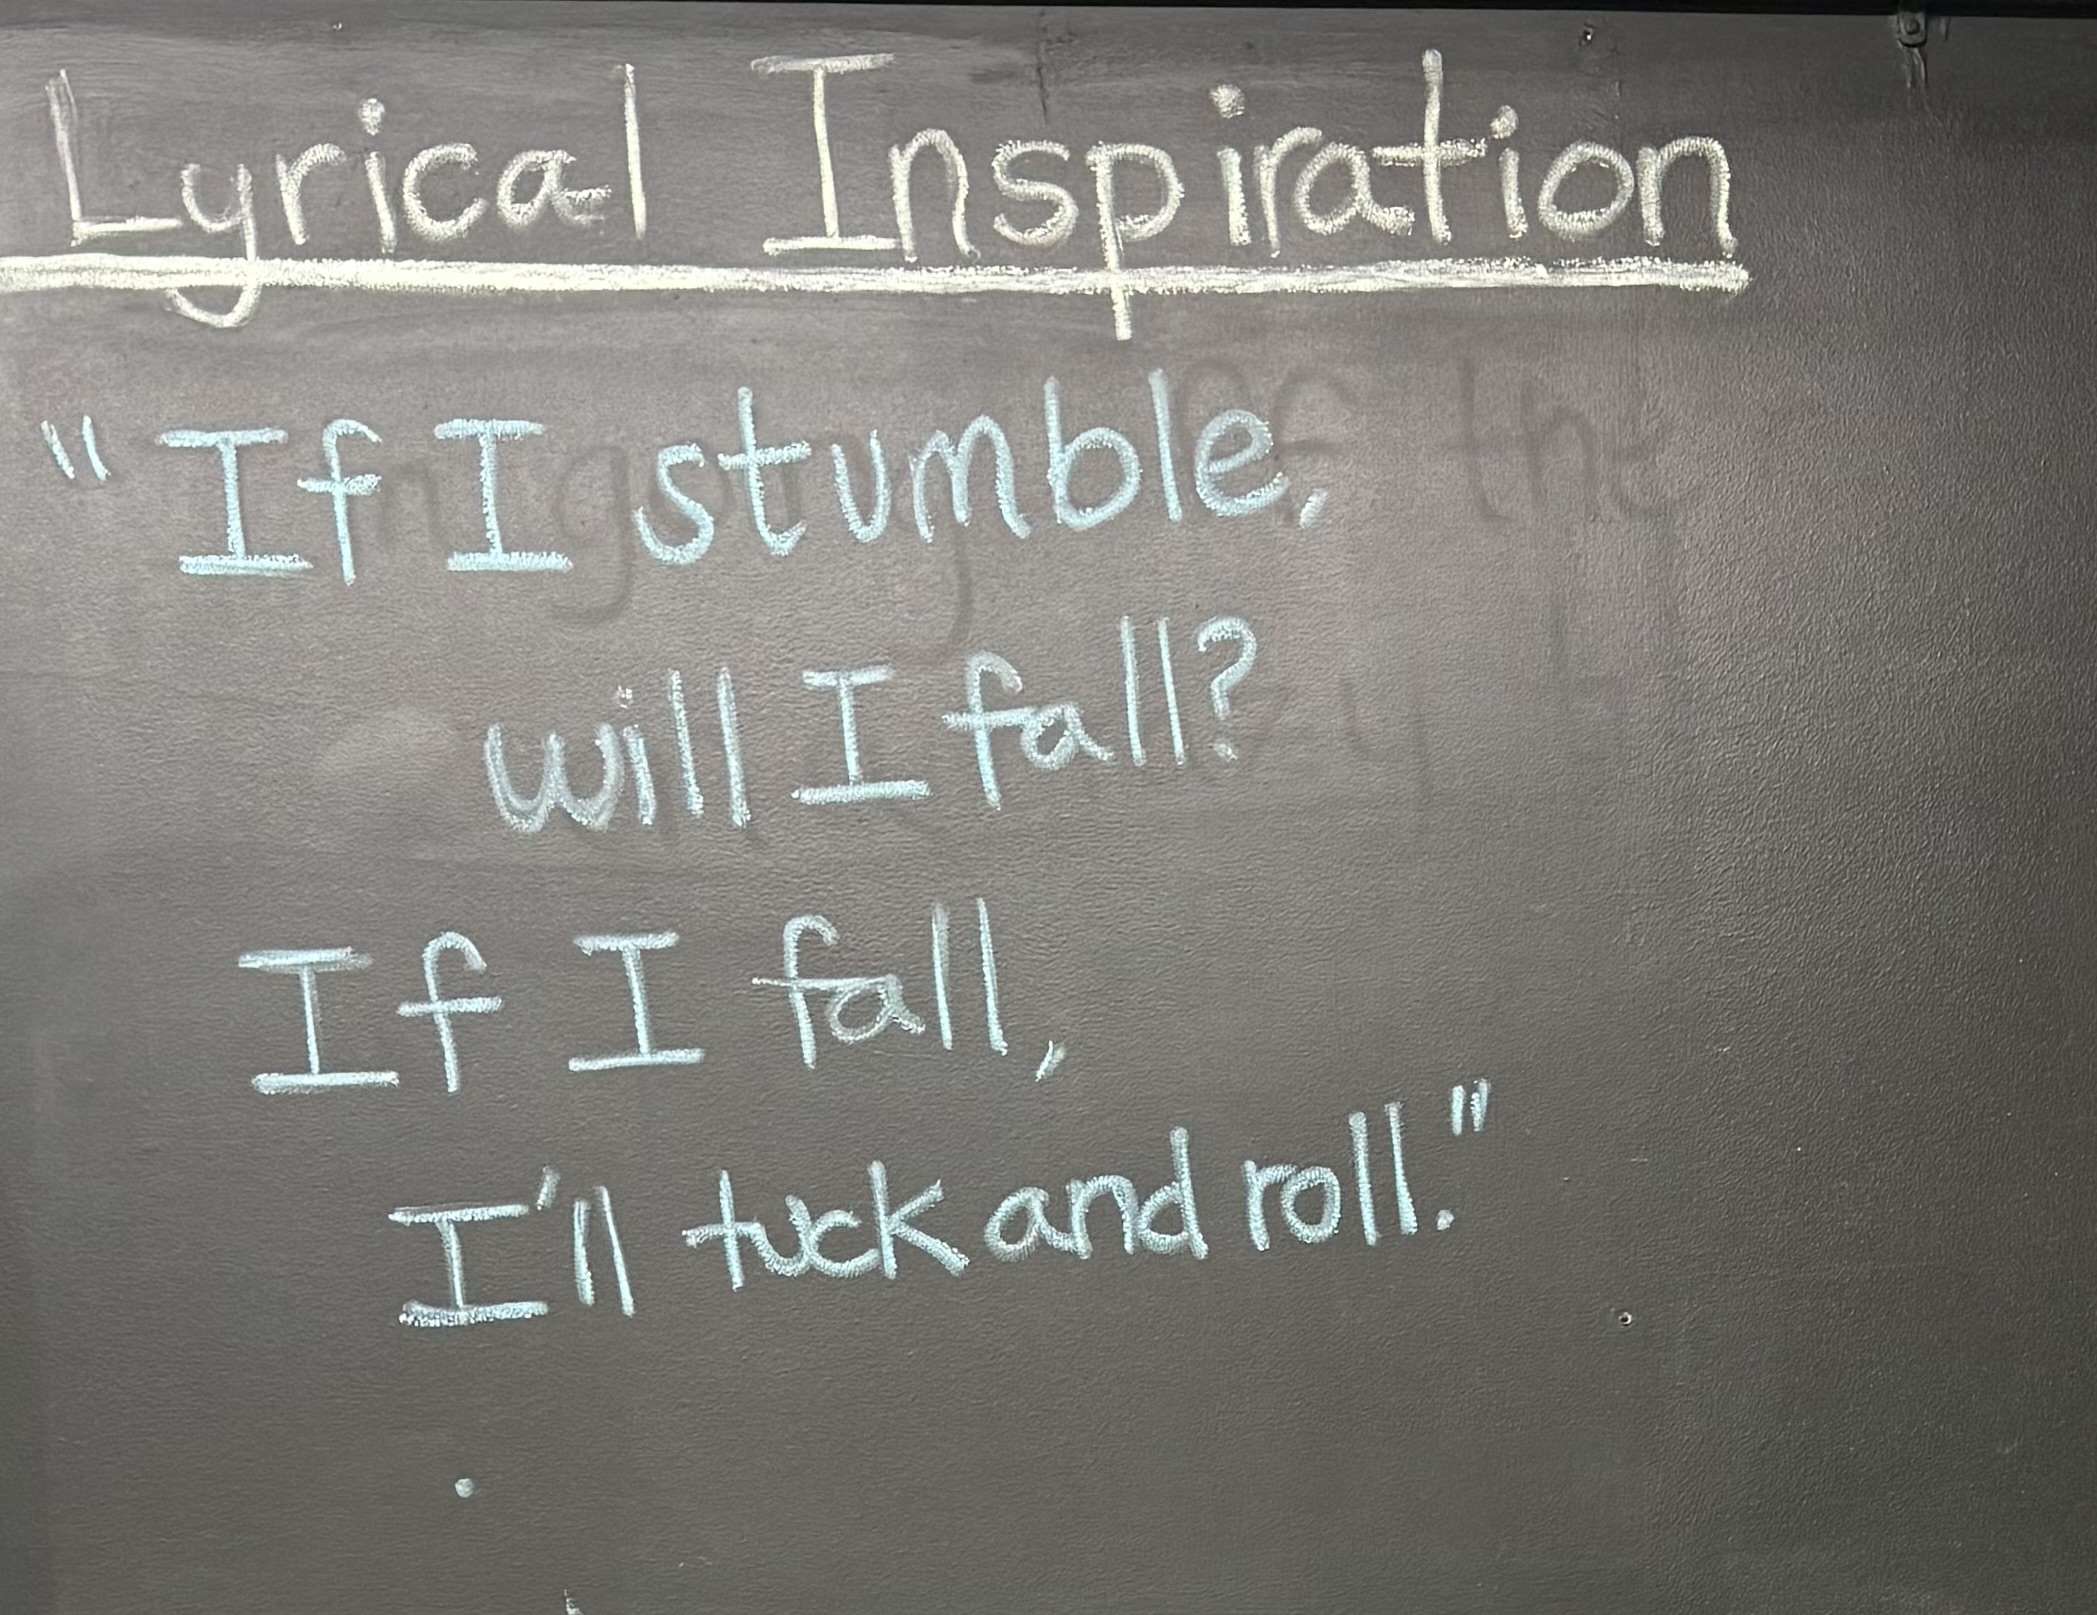 Lyrical Inspiration
"If I stumble,
will I fall?
If I fall,
I'll tuck and roll."